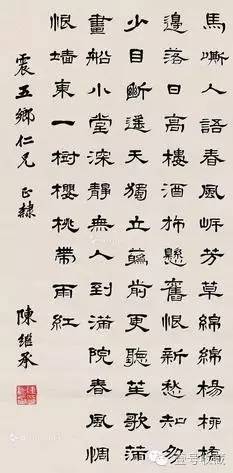 馬嘶人語春風岸芳草綿綿楊柳橋
邊落日高樓酒斾懸舊恨新愁知多
少目斷遙天獨立蘤前更聽笙歌滿
畫船小堂深靜無人到滿院春風惆
悵墻東一樹櫻桃帶雨紅
震五鄉仁兄 正隸
陳繼承
壹号收藏